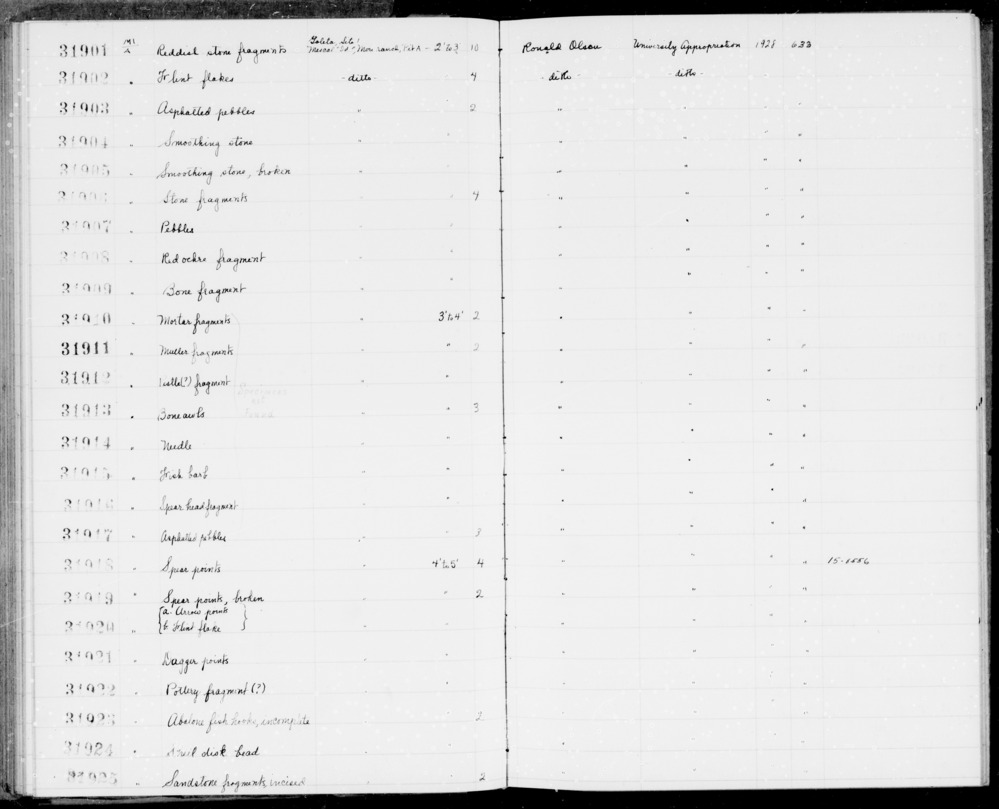 Goleta Site!
31901 Reddish stone fragments Mescal Id., More ranch, Pit A - 2' to 3' 10 Ronald Olson University Appropriation 1928 633
31902 " Flint flakes -ditto- 4 -ditto- -ditto-
31903 " Asphalted pebbles " " 2 " " " "
31904 " Smoothing stone " " " " " "
31905 " Smoothing stone, broken " " " " " "
31906 " Stone fragments " " 4 " " " "
31907 " Pebbles " " " " " "
31908 " Red ochre fragment " " " " " "
31909 " Bone fragment " " " " " "
31910 " Mortar fragments " 3' to 4' 2 " " " "
31911 " Muller fragments " " 2 " " " "
31912 " Pestle(?) fragment " " " " " "
Specimens
not
found
31913 " Bone awls " " 3 " " " "
31914 " Needle " " " " " "
31915 " Fish barb " " " " " "
31916 " Spear head fragment " " " " " "
31917 " Asphalted pebbles " " " " " "
31918 " Spear points " 4' to 5' 4 " " " "
31919 " Spear points, broken " " 2 " " " "
{a. Arrow points }
31920 " {b. Flint flake }
31921 " Dagger points " " " " "
31922 " Pottery fragment (?) " " " " "
31923 " Abalone fish hooks, incomplete " 2 " " " "
31924 " Shell disk bead " " " " "
31925 " Sandstone fragments, incised " 2 " " " "